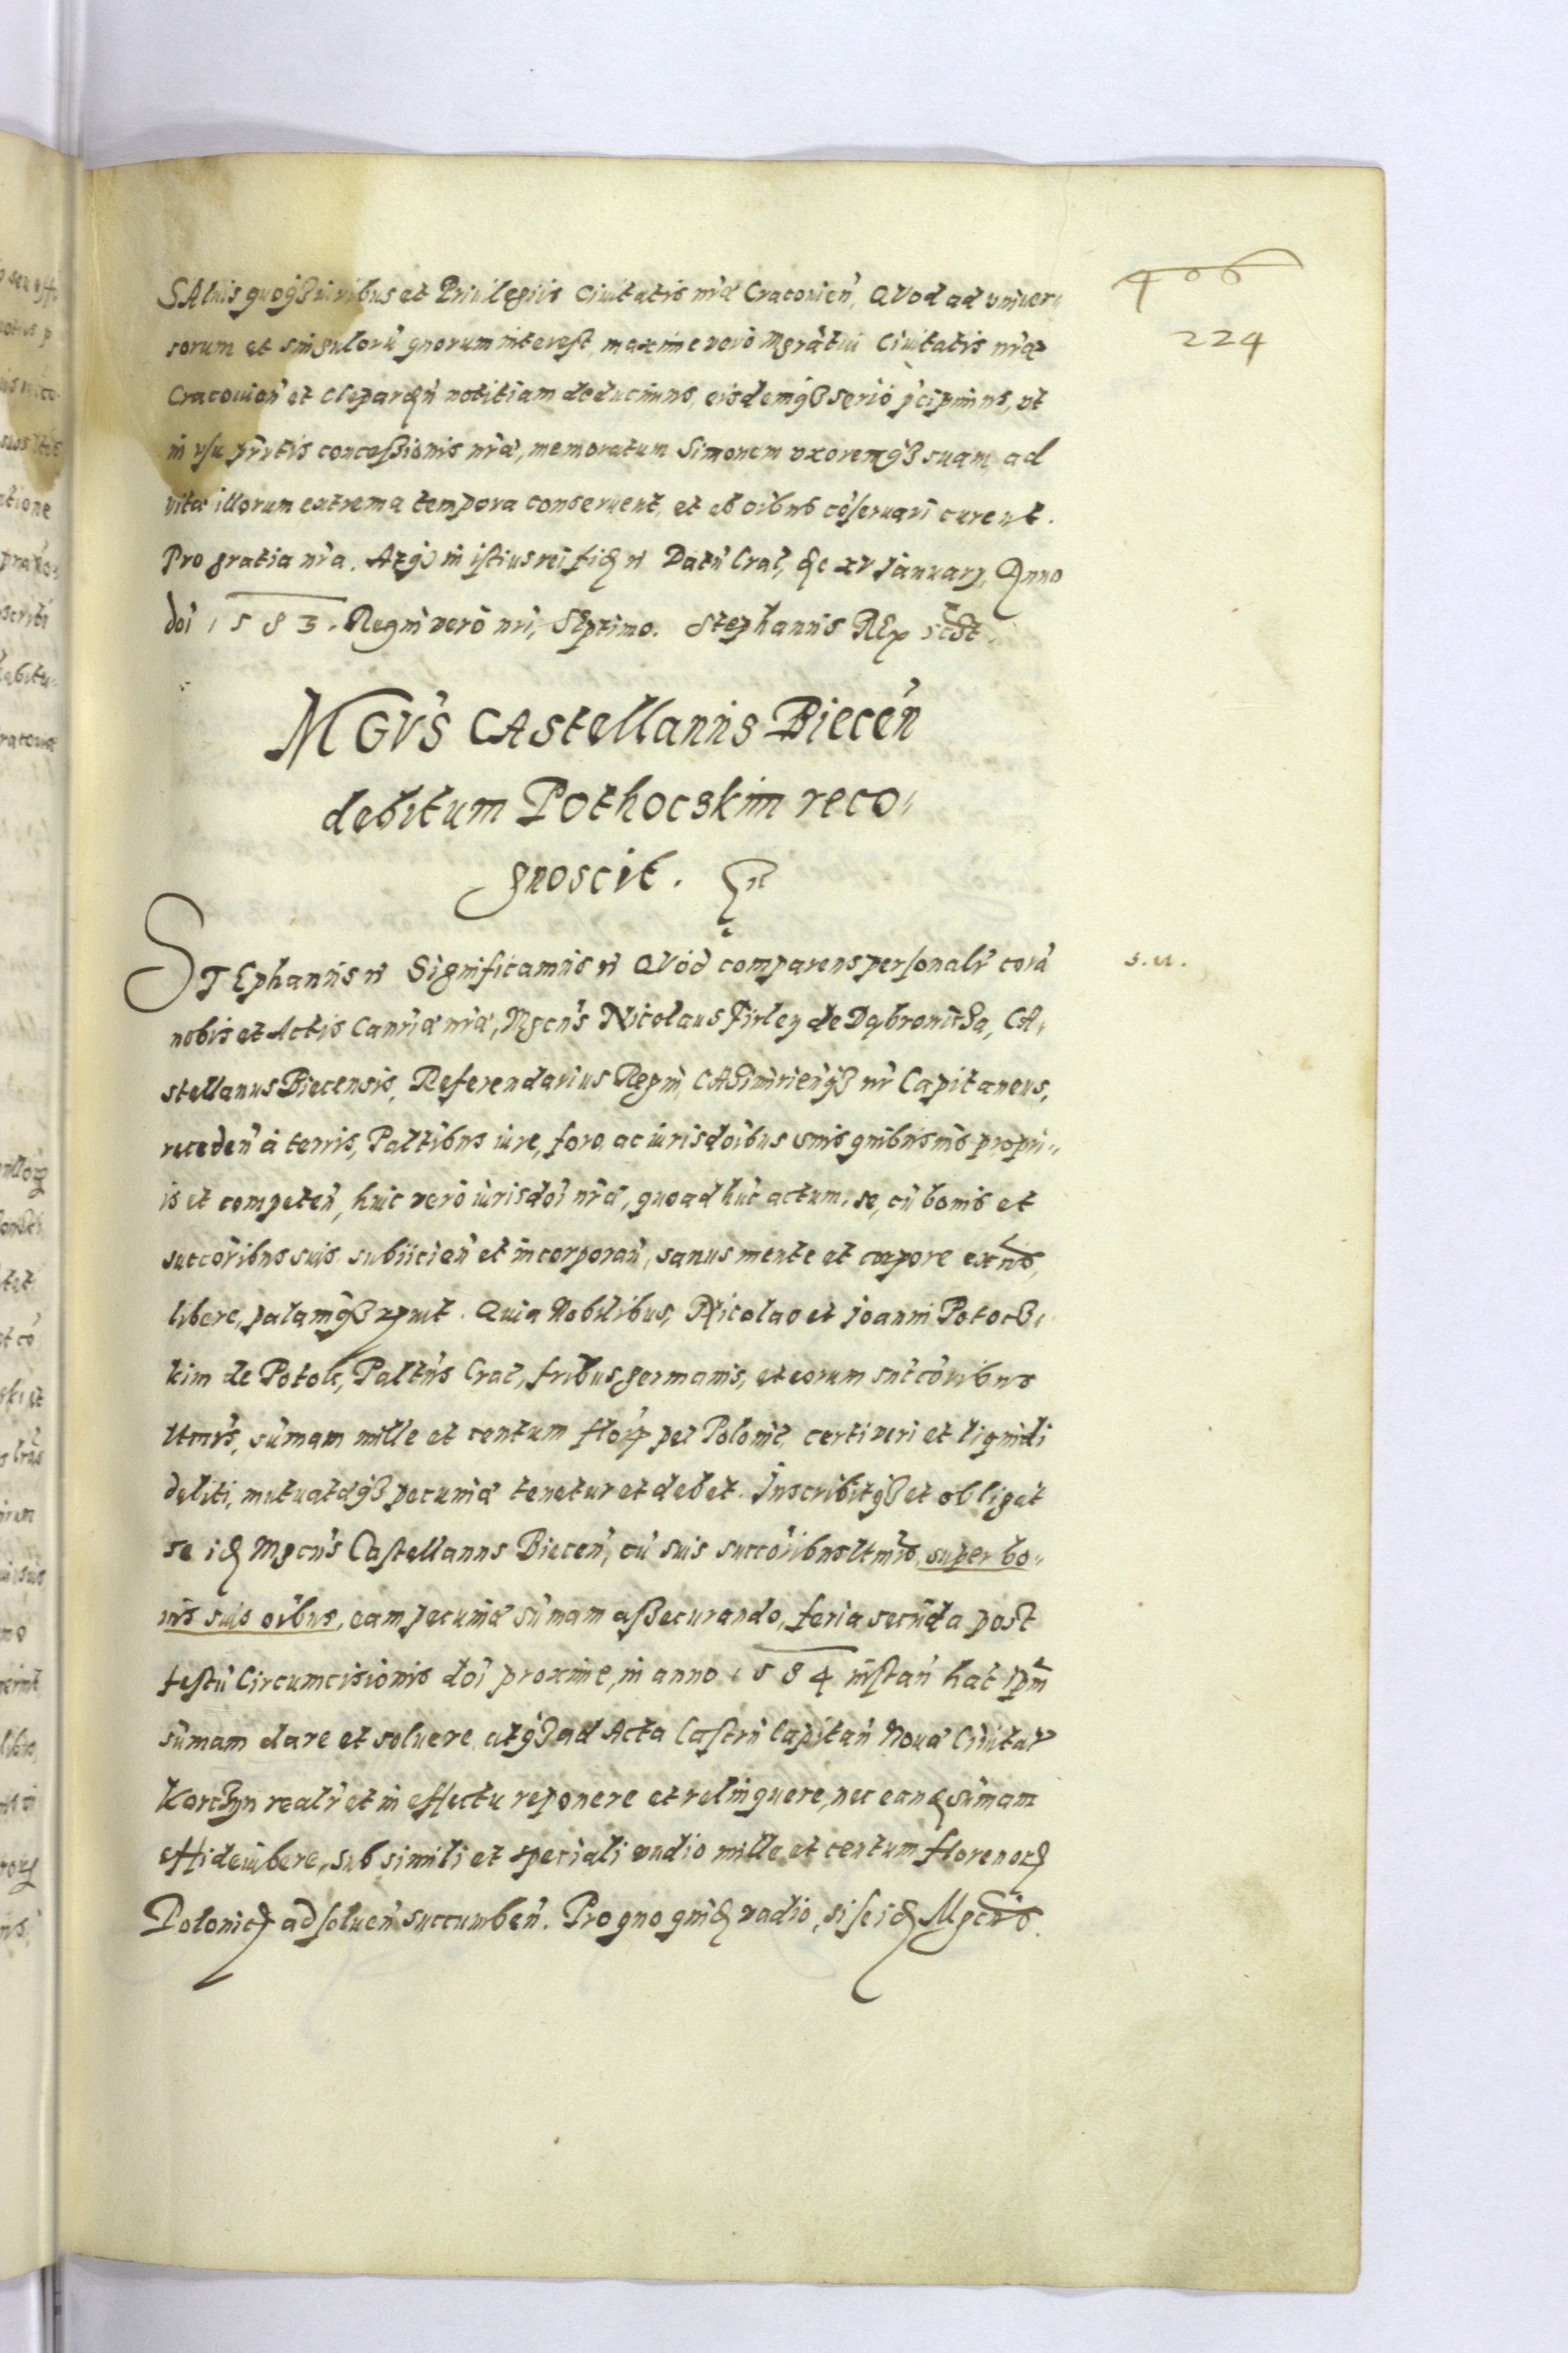 406
224
SAluis quoqз iuribus et Priuilegiis Ciuitatis nrae Cracouien, QVod ad vniuer-
sorum et singuloru quorum interest, maxime vero Mgratui Ciuitatis nrae
Cracouien et Cleparden notitiam deducimus, eisdemqз serio pcipimus, vt
in vsu pntis concessionis nrae, memoratum Simonem vxoremqз suam, ad
vitae illorum extrema tempora conseruent, et ab oibus coseruari curent.
Pro gratia nra. Atqз in istius rei fidem Datu Crac, die xv January, Anno
doi 1583. Regni vero nri, Septimo. Stephanus REx sctst.
MGVS CAstellanus Biecen
debitum Pothocskim reco-
gnoscit.
STEphanus Significamus QVod comparens personalr cora
s. u.
nobis et Actis Canriae nrae, Mgcus Nicolaus Firley de Dąbrowicza, CA-
stellanus Biecensis, Referendarius Regni, CAsimirienqз nr Capitaneus,
receden a terris, Paltibus iure, foro ac iurisdoibus suis quibusuis propri-
is et competen, huic vero iurisdoi nrae, quoad huc actum, se, cu bonis et
succoribus suis subiicien et incorporan, sanus mente et corpore exns,
libere, palamqз rjuit. Quia Nobilibus, Nicolao et Joanni Potocs-
kim de Potok, Paltus Crac, fribus germanis, et eorum succoribus
ltmis, sumam mille et centum flor pec Polonic, certi veri et liquidi
debiti, mutuataeqз pecuniae tenetur et debet. Inscribitqз et obligat
se id Mgcus Castellanus Biecen, cu suis succoribus ltmis, super bo-
nis suis oibus, eam pecuniae sumam assecurando, feria secuda post
festu Circumcisionis doi proxime, in anno 1584 instan hac ipm
sumam dare et soluere, atqз ad Acta Castrn Capitan Nouae Ciuitat
Korczyn realr et in effectu reponere et relinquere, nec eand sumam
sub simili et speciali vadio mille et centum florenor
Polonic adsoluen succumben. Pro quo quid vadio, si se id Mgcus